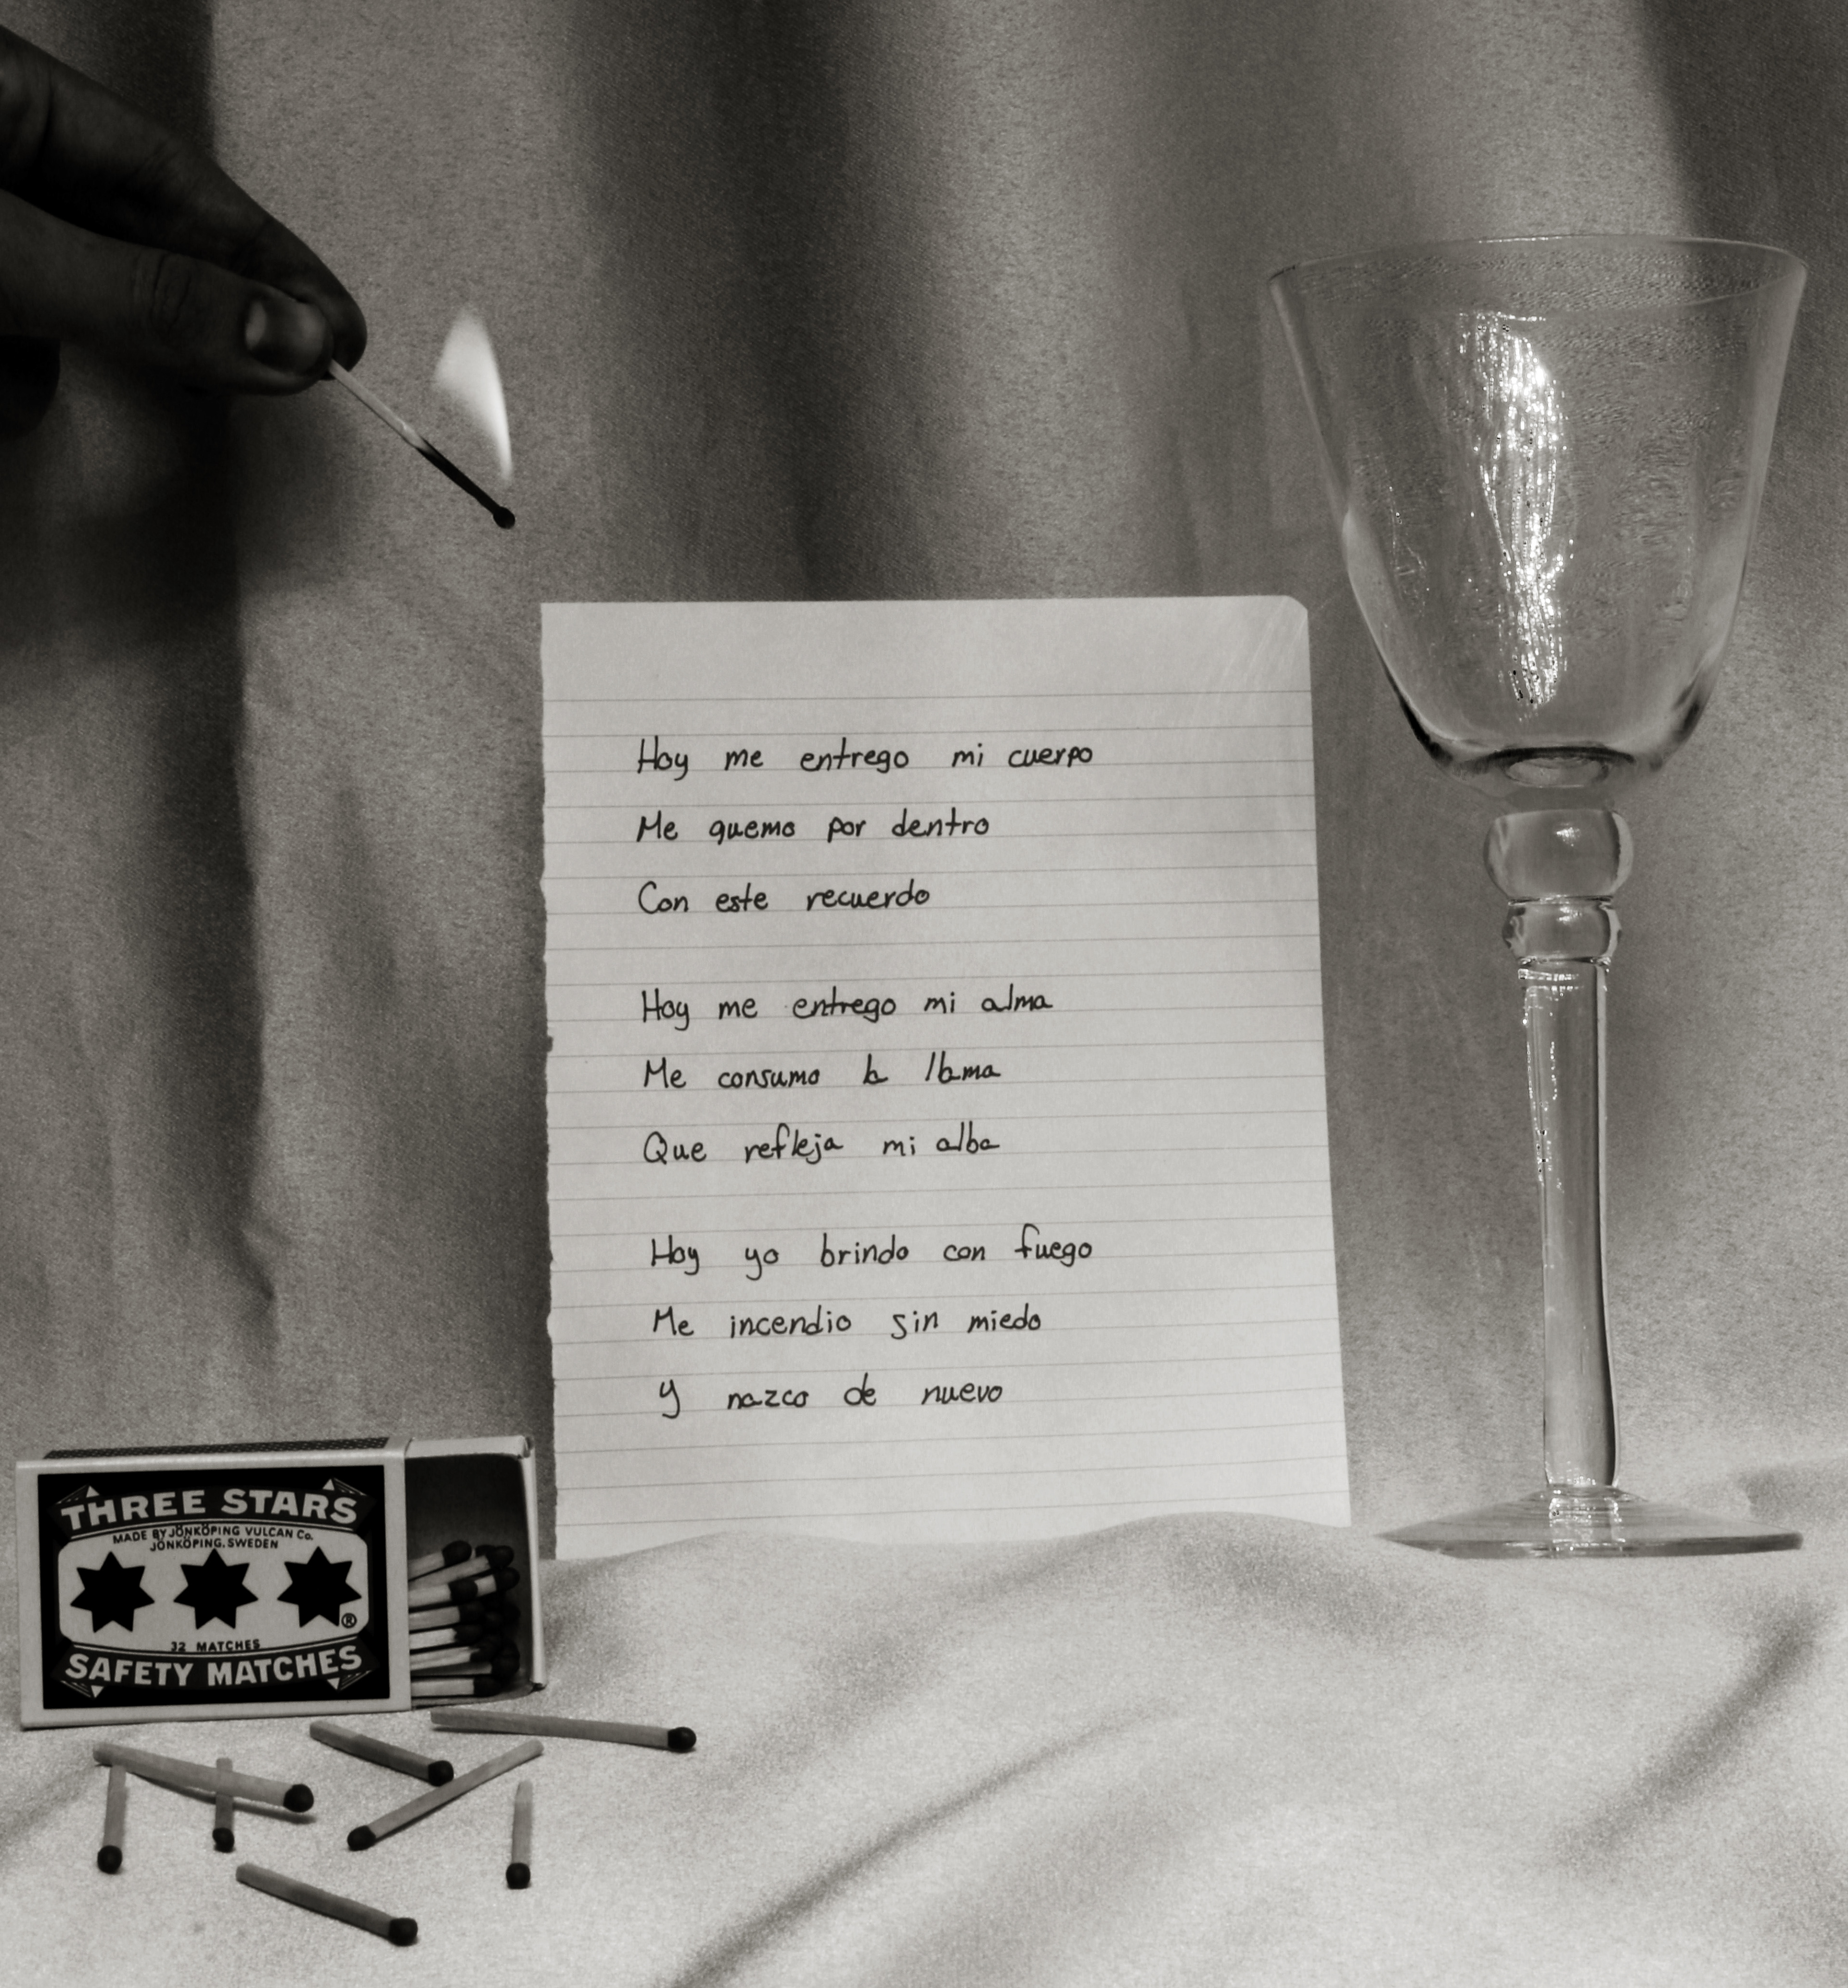 Hoy me entrego mi cuerpo
Me quemo por dentro
Con este recuerdo
Hoy me entrego mi alma
Me consumo la llama
Que refleja mi alba
Hoy yo brindo con fuego
Me incendio sin miedo
Y nazco de nuevo
THREE STARS
MADE BY JÖNKÖPING VULCAN Co.
JÖNKÖPING. SWEDEN
®
32 MATCHES
SAFETY MATCHES